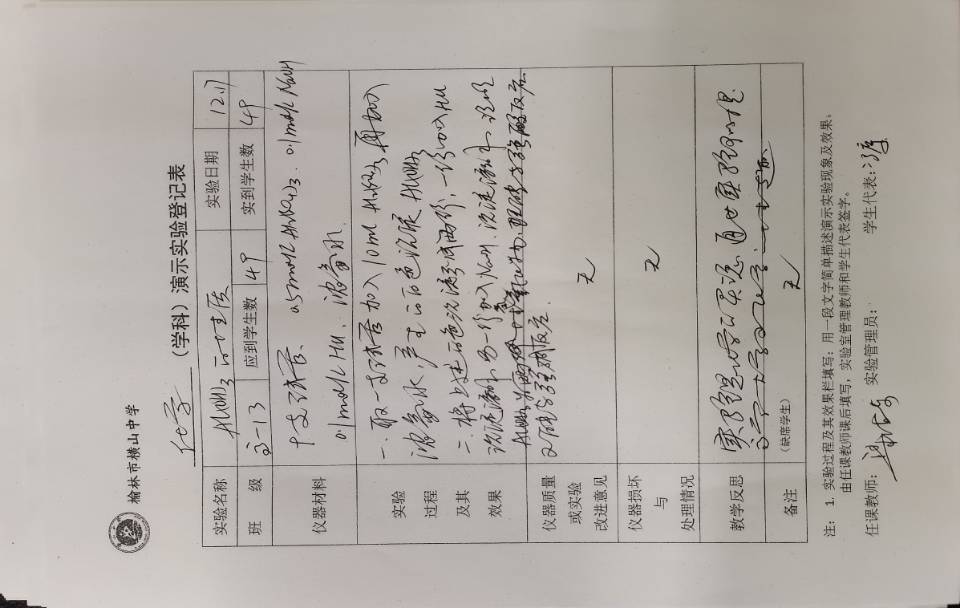 榆林市横山中学
化学 (学科)演示实验登记表
实验名称 Al(OH)3的性质 实验日期 12.17
班 级 高一13 应到学生数 49 实到学生数 49
仪器材料 十支试管、0.5mol/L Al2(SO4)3、0.1mol/L NaOH
0.1mol/L HCl、浓氨水
实验过程及其效果
一、取一支试管加入10ml Al2(SO4)3再加入
浓氨水,产生白色沉淀 Al(OH)3
二、将上述白色沉淀分成两份,一份加入HCl
沉淀溶解,另一份加入NaOH,沉淀溶解
仪器质量或实验改进意见 无
仪器损坏与处理情况 无
教学反思 实验是化学的灵魂,通过实验
备注 (缺席学生) 无
注: 1. 实验过程及其效果栏填写:用一段文字简单描述演示实验现象及效果。
由任课教师课后填写,实验室管理教师和学生代表签字。
任课教师: 实验管理员: 学生代表: